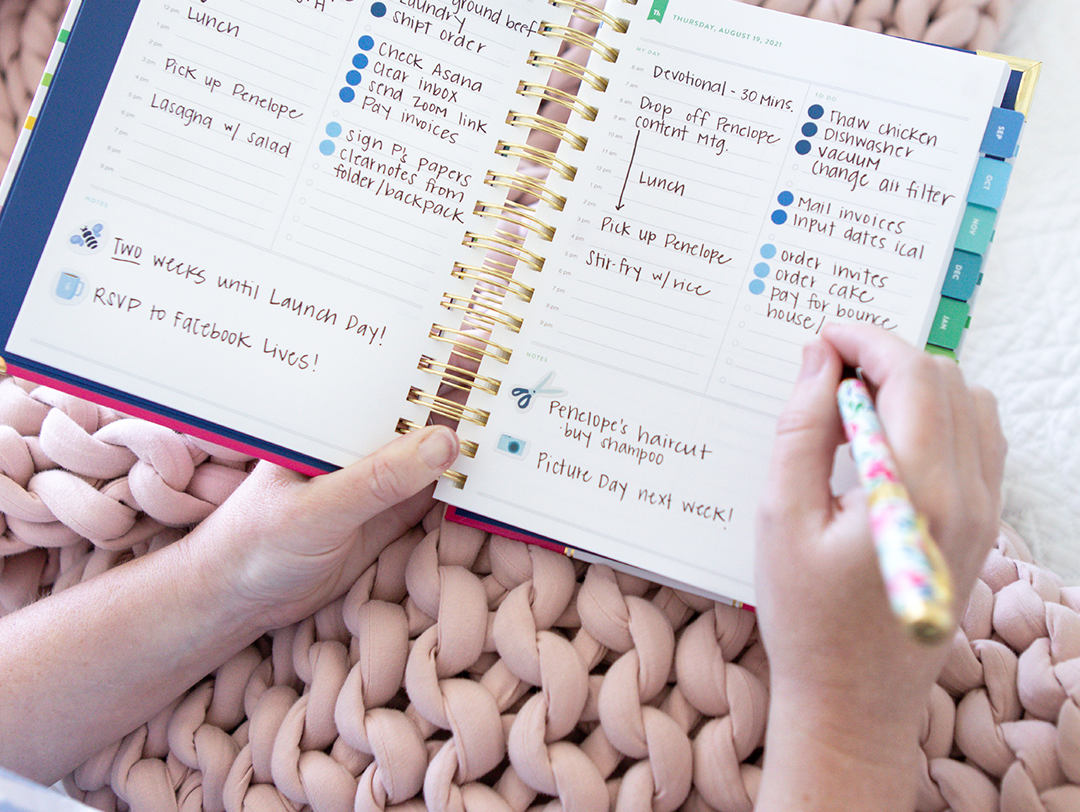 Lunch
Pick up Penelope
Lasagna w/ salad
12 pm
1 pm
2 pm
3 pm
4 pm
5 pm
6 pm
7 pm
8 pm
9 pm
Laundry
ground beef
shipt order
Check Asana
Clear inbox
send zoom link
Pay invoices
sign P's papers
clearnotes from
folder/backpack
NOTES
Two weeks until Launch Day!
RSVP to Facebook Lives!
Th
THURSDAY, AUGUST 19, 2021
MY DAY
Devotional - 30 Mins.
Drop off Penelope
content Mtg.
Lunch
Pick up Penelope
Stir-fry w/ rice
8 am
9 am
10 am
11 am
12 pm
1 pm
2 pm
3 pm
4 pm
5 pm
6 pm
7 pm
8 pm
9 pm
TO DO
Thaw chicken
Dishwasher
vacuum
change air filter
Mail invoices
Input dates ical
order invites
order cake
pay for bounce
house/
NOTES
Penelope's haircut
·buy shampoo
Picture Day next week!
SEP
OCT
NOV
DEC
JAN